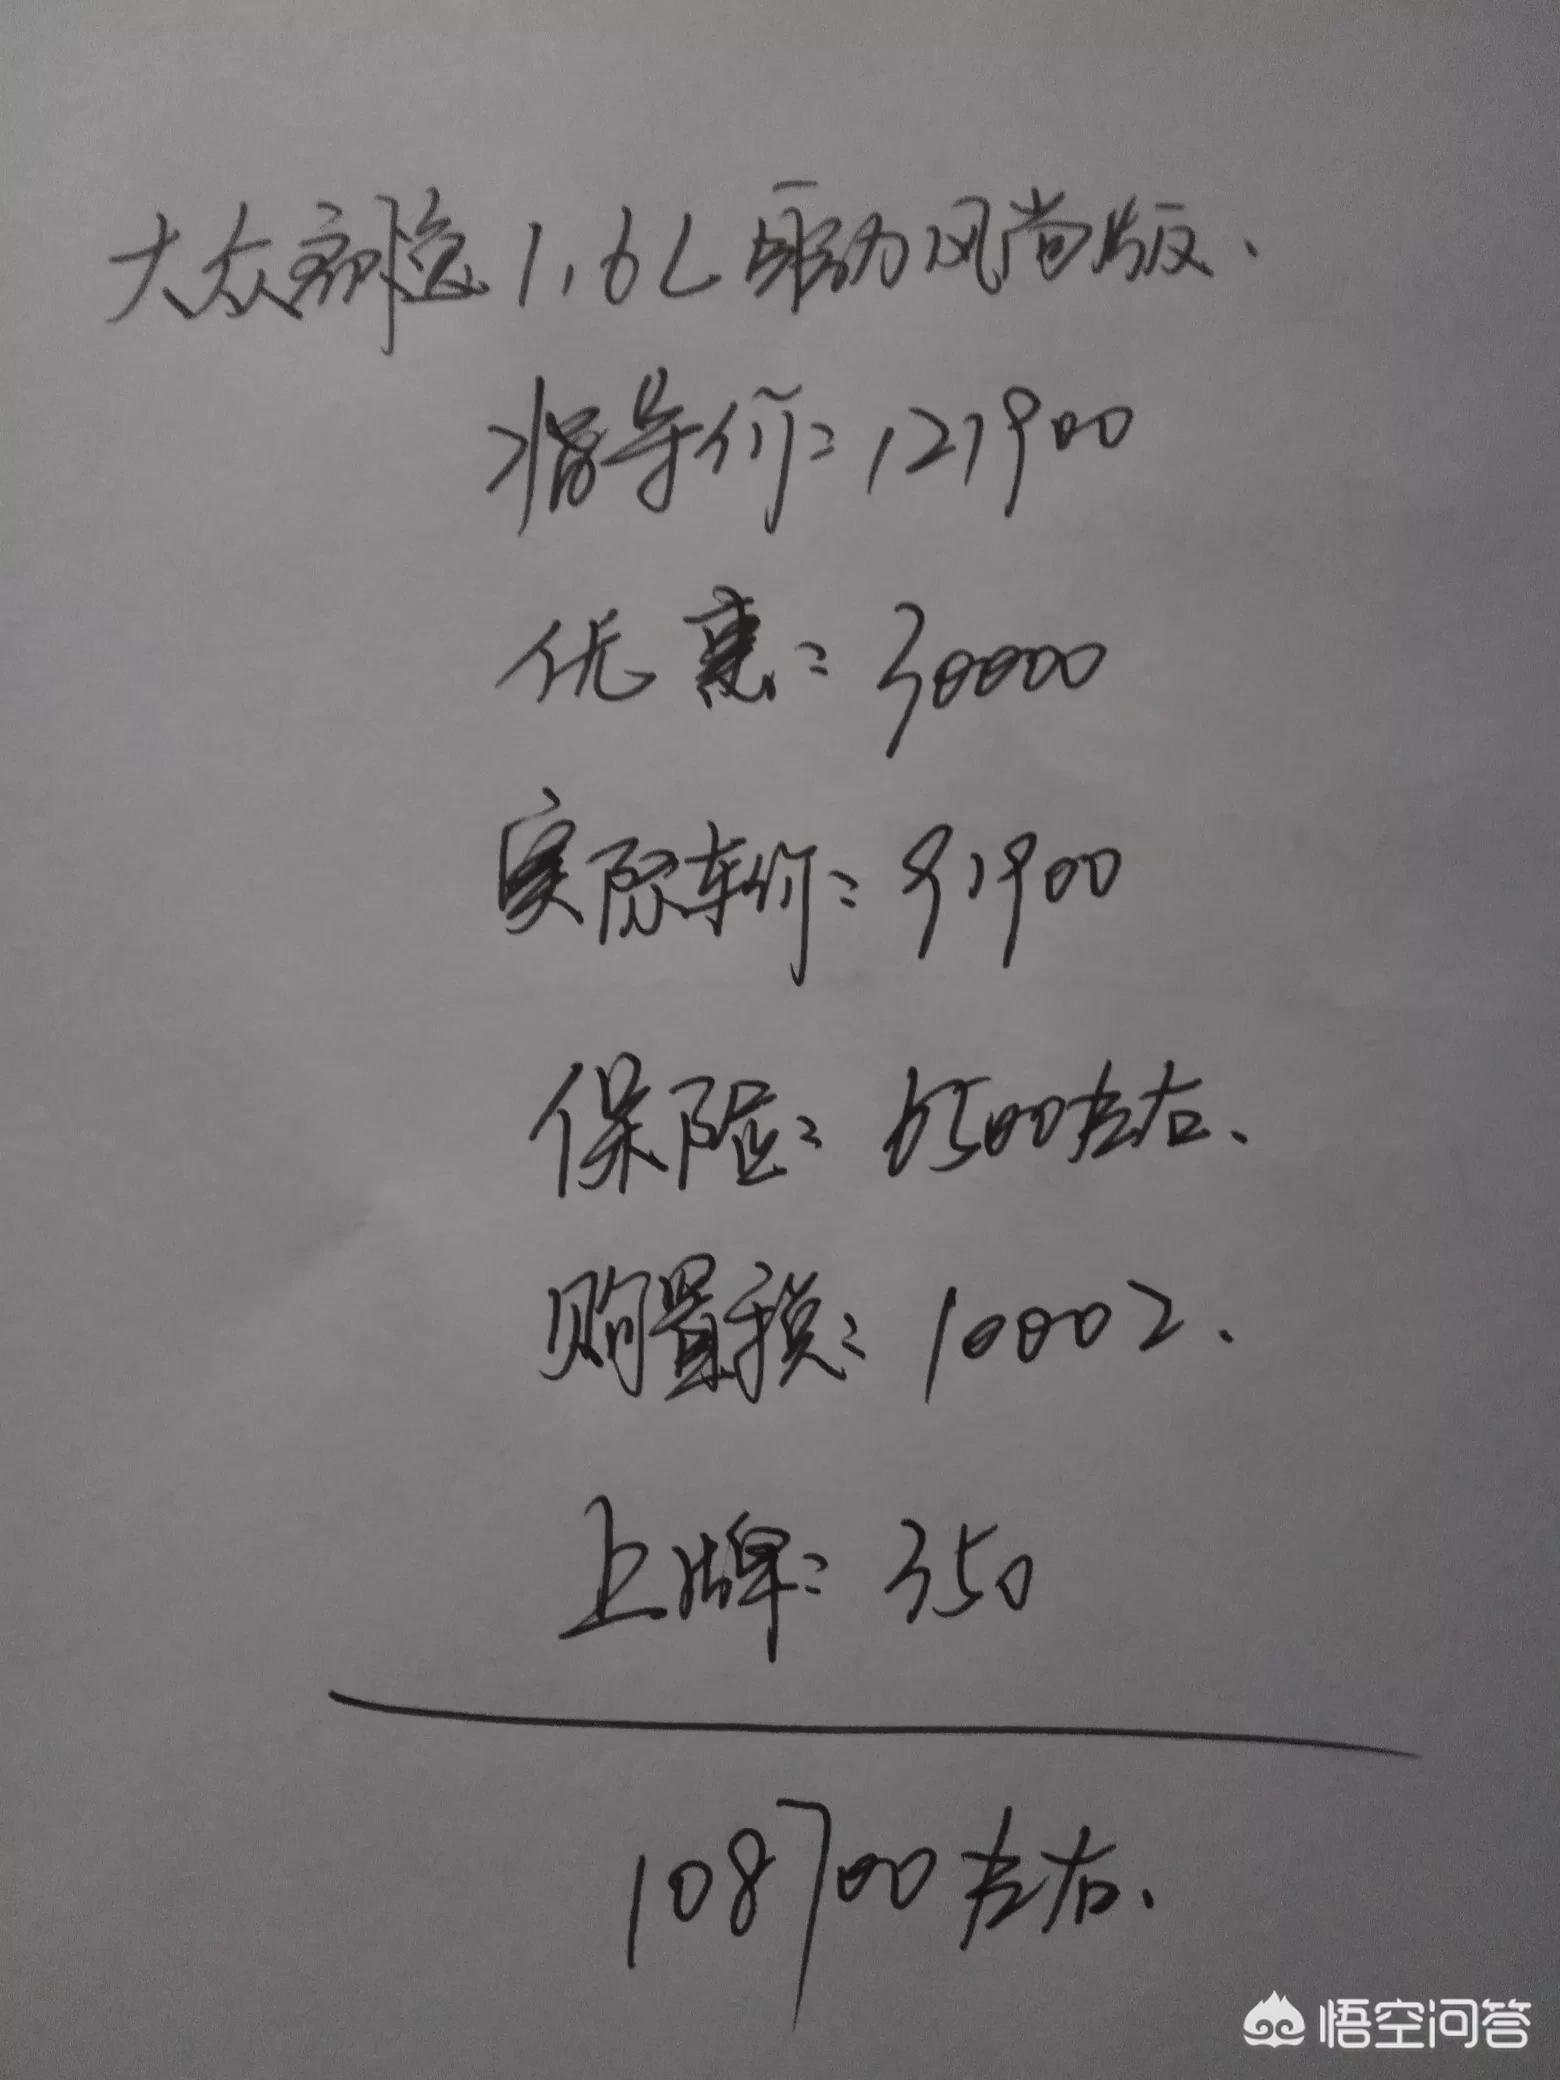 大众朗逸1.6L自动风尚版.
指导价:121900
优惠:30000
实际车价:91900
保险:6500左右.
购置税:10002.
上牌:350
108700左右.
悟空问答